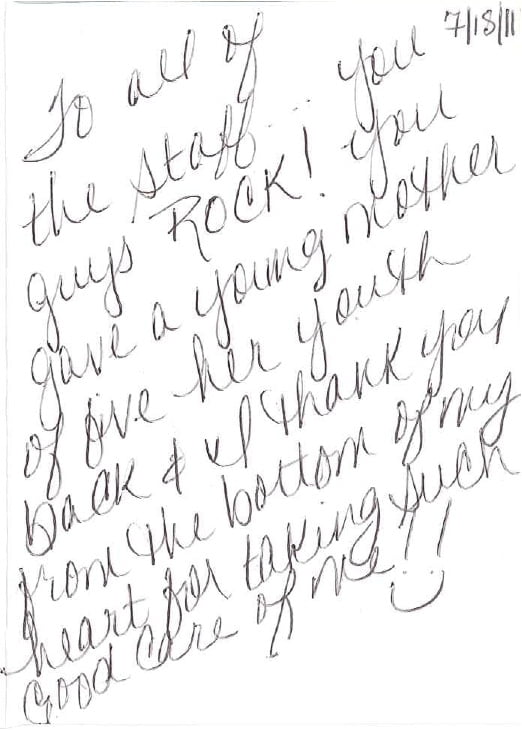 7/18/11
To all of
the staff... you
guys ROCK! You
gave a young mother
of five her youth
back & I thank you
from the bottom of my
heart for taking such
Good care of me!!